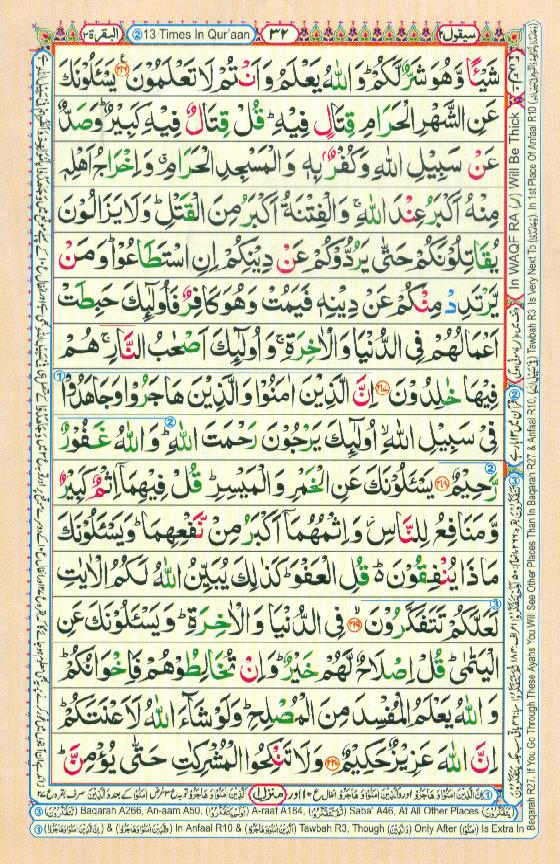 سيقول٢ ٣٢ ② 13 Times In Qur'aan البقرة٢
شَيْـًٔا وَّهُوَ شَرٌّ لَّكُمْ ؕ وَاللّٰهُ يَعْلَمُ وَاَنْتُمْ لَا تَعْلَمُوْنَ ۧ ﴿٢١٦﴾ يَسْـَٔلُوْنَكَ
عَنِ الشَّهْرِ الْحَرَامِ قِتَالٍ فِيْهِ ؕ قُلْ قِتَالٌ فِيْهِ كَبِيْرٌ ؕ وَصَدٌّ
عَنْ سَبِيْلِ اللّٰهِ وَكُفْرٌۢ بِهٖ وَالْمَسْجِدِ الْحَرَامِ ۗ وَاِخْرَاجُ اَهْلِهٖ
مِنْهُ اَكْبَرُ عِنْدَ اللّٰهِ ۚ وَالْفِتْنَةُ اَكْبَرُ مِنَ الْقَتْلِ ؕ وَلَا يَزَالُوْنَ
يُقَاتِلُوْنَكُمْ حَتّٰى يَرُدُّوْكُمْ عَنْ دِيْنِكُمْ اِنِ اسْتَطَاعُوْا ؕ وَمَنْ
يَّرْتَدِدْ مِنْكُمْ عَنْ دِيْنِهٖ فَيَمُتْ وَهُوَ كَافِرٌ فَاُولٰٓئِكَ حَبِطَتْ
اَعْمَالُهُمْ فِى الدُّنْيَا وَالْاٰخِرَةِ ۚ وَاُولٰٓئِكَ اَصْحٰبُ النَّارِ ۚ هُمْ
فِيْهَا خٰلِدُوْنَ ﴿٢١٧﴾ اِنَّ الَّذِيْنَ اٰمَنُوْا وَالَّذِيْنَ هَاجَرُوْا وَجَاهَدُوْا ①
فِىْ سَبِيْلِ اللّٰهِ ۙ اُولٰٓئِكَ يَرْجُوْنَ رَحْمَتَ اللّٰهِ ؕ ② وَاللّٰهُ غَفُوْرٌ
رَّحِيْمٌ ② ﴿٢١٨﴾ يَسْـَٔلُوْنَكَ عَنِ الْخَمْرِ وَالْمَيْسِرِ ؕ قُلْ فِيْهِمَآ اِثْمٌ كَبِيْرٌ
وَّمَنَافِعُ لِلنَّاسِ ۫ وَاِثْمُهُمَآ اَكْبَرُ مِنْ نَّفْعِهِمَا ؕ وَيَسْـَٔلُوْنَكَ
مَاذَا يُنْفِقُوْنَ ۬ قُلِ الْعَفْوَ ؕ كَذٰلِكَ يُبَيِّنُ اللّٰهُ لَكُمُ الْاٰيٰتِ
لَعَلَّكُمْ تَتَفَكَّرُوْنَ ③ ﴿٢١٩﴾ فِى الدُّنْيَا وَالْاٰخِرَةِ ؕ وَيَسْـَٔلُوْنَكَ عَنِ
الْيَتٰمٰى ؕ قُلْ اِصْلَاحٌ لَّهُمْ خَيْرٌ ؕ وَاِنْ تُخَالِطُوْهُمْ فَاِخْوَانُكُمْ ؕ
وَاللّٰهُ يَعْلَمُ الْمُفْسِدَ مِنَ الْمُصْلِحِ ؕ وَلَوْ شَآءَ اللّٰهُ لَاَعْنَتَكُمْ ؕ
اِنَّ اللّٰهَ عَزِيْزٌ حَكِيْمٌ ﴿٢٢٠﴾ وَلَا تَنْكِحُوا الْمُشْرِكٰتِ حَتّٰى يُؤْمِنَّ ؕ
منزل١
③ (تَتَفَكَّرُوْنَ) Baqarah A266, An-aam A50, (يَتَفَكَّرُوْا) A-raaf A184, (تَتَفَكَّرُوْا) Saba' A46, At All Other Places (يَتَفَكَّرُوْنَ)
In Anfaal R10 & Tawbah R3, Though Only After Is Extra In
Baqarah R27. If You Go Through These Ayahs You Will See Other Places Than In Baqarah R27 & Anfaal R10, Tawbah R3 Is Very Next To In 1st Place Of Anfaal R10
In WAQF RA (ر) Will Be Thick